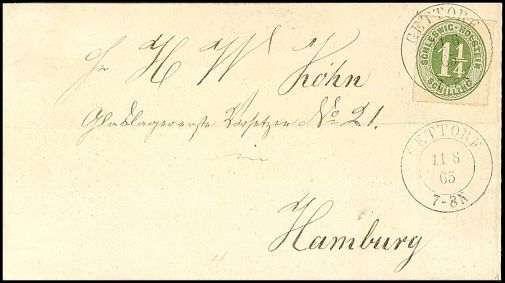 GETTORF
SCHLESWIG-HOLSTEIN
1 1/4
SCHILLING
H W Köhn
Vorsetzen No 21.
GETTORF
11 6
65
7-8N
Hamburg